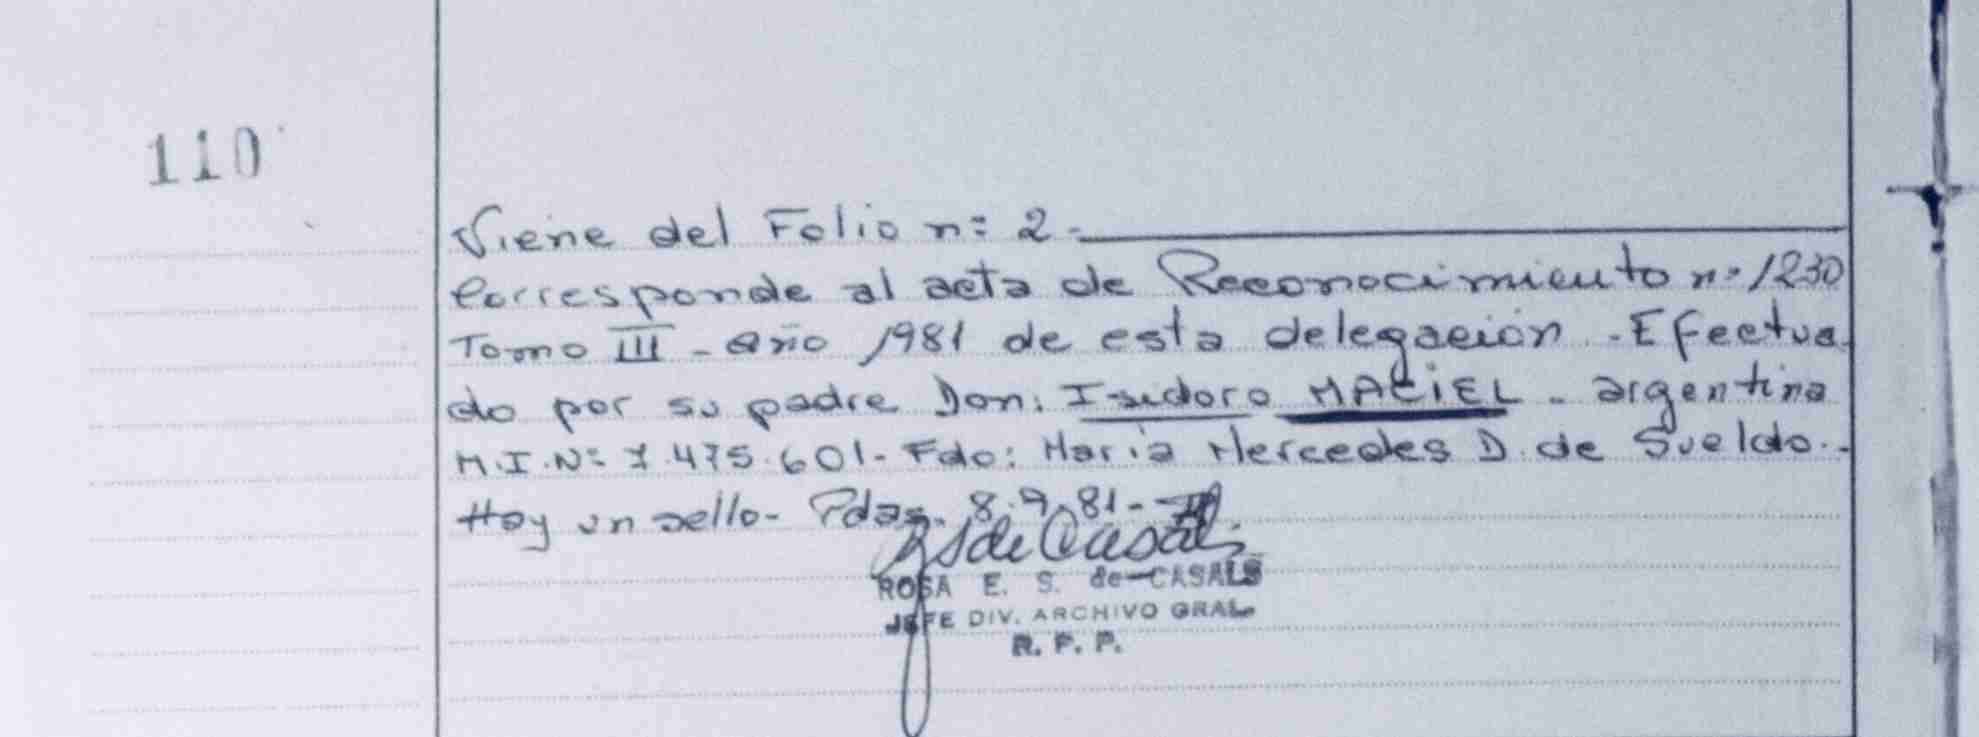 110
Viene del Folio n: 2.-
Corresponde al acta de Reconocimiento n: 1230
Tomo III - año 1981 de esta delegación. - Efectua
do por su padre Don: Isidoro MACIEL - argentino
M.I.N: 7.475.601 - Fdo: María Mercedes D. de Sueldo.-
Hay un sello - Pdas. 8.9.81 -
R S de Casals
ROSA E. S. de CASALS
JEFE DIV. ARCHIVO GRAL.
R. P. P.